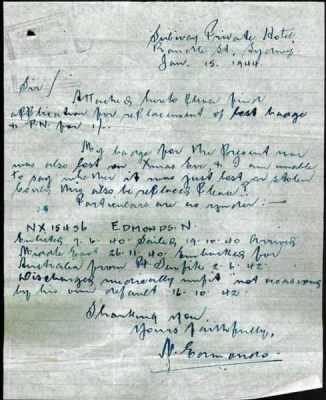 Subway Private Hotel
St, Sydney
Jan. 15. 1944.
Sir/
Attached hereto please find
application for replacement of lost badge
& P.N. for 1/-.
My badge for the Present war
was also lost on Xmas Eve & I am unable
to say whether it was just lost or stolen
Could this also be replaced Please?
Particulars are as under:—
NX 15456 EDMONDS. N.
Enlisted 7. 6. 40 Sailed 19. 10. 40 Arrived
Middle East 26. 11. 40 Embarked for
Australia from Pt 2. 6. 42
Discharged medically unfit not occasioned
by his own default 16. 10. 42
Thanking You.
Yours Faithfully,
N. Edmonds.